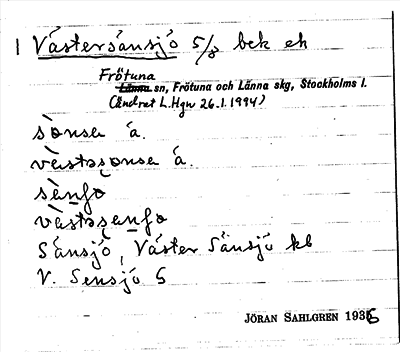 1 Västersånsjö 5/8 bek ek
Frötuna
Länna sn, Frötuna och Länna skg, Stockholms l.
(Ändrat L.Hgn 26.1.1994)
sònsea á.
vàstsonsea á.
sènʃo
vàstsenʃo
Sånsjö, Väster Sånsjö kb
V. Sensjö G
JÖRAN SAHLGREN 1935